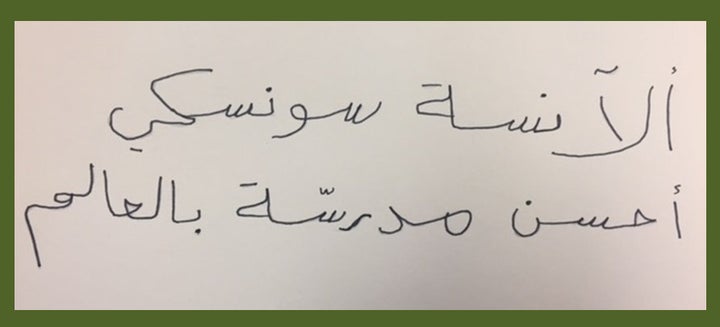 ألآنسة سونسكي
أحسن مدرسّة بالعالم